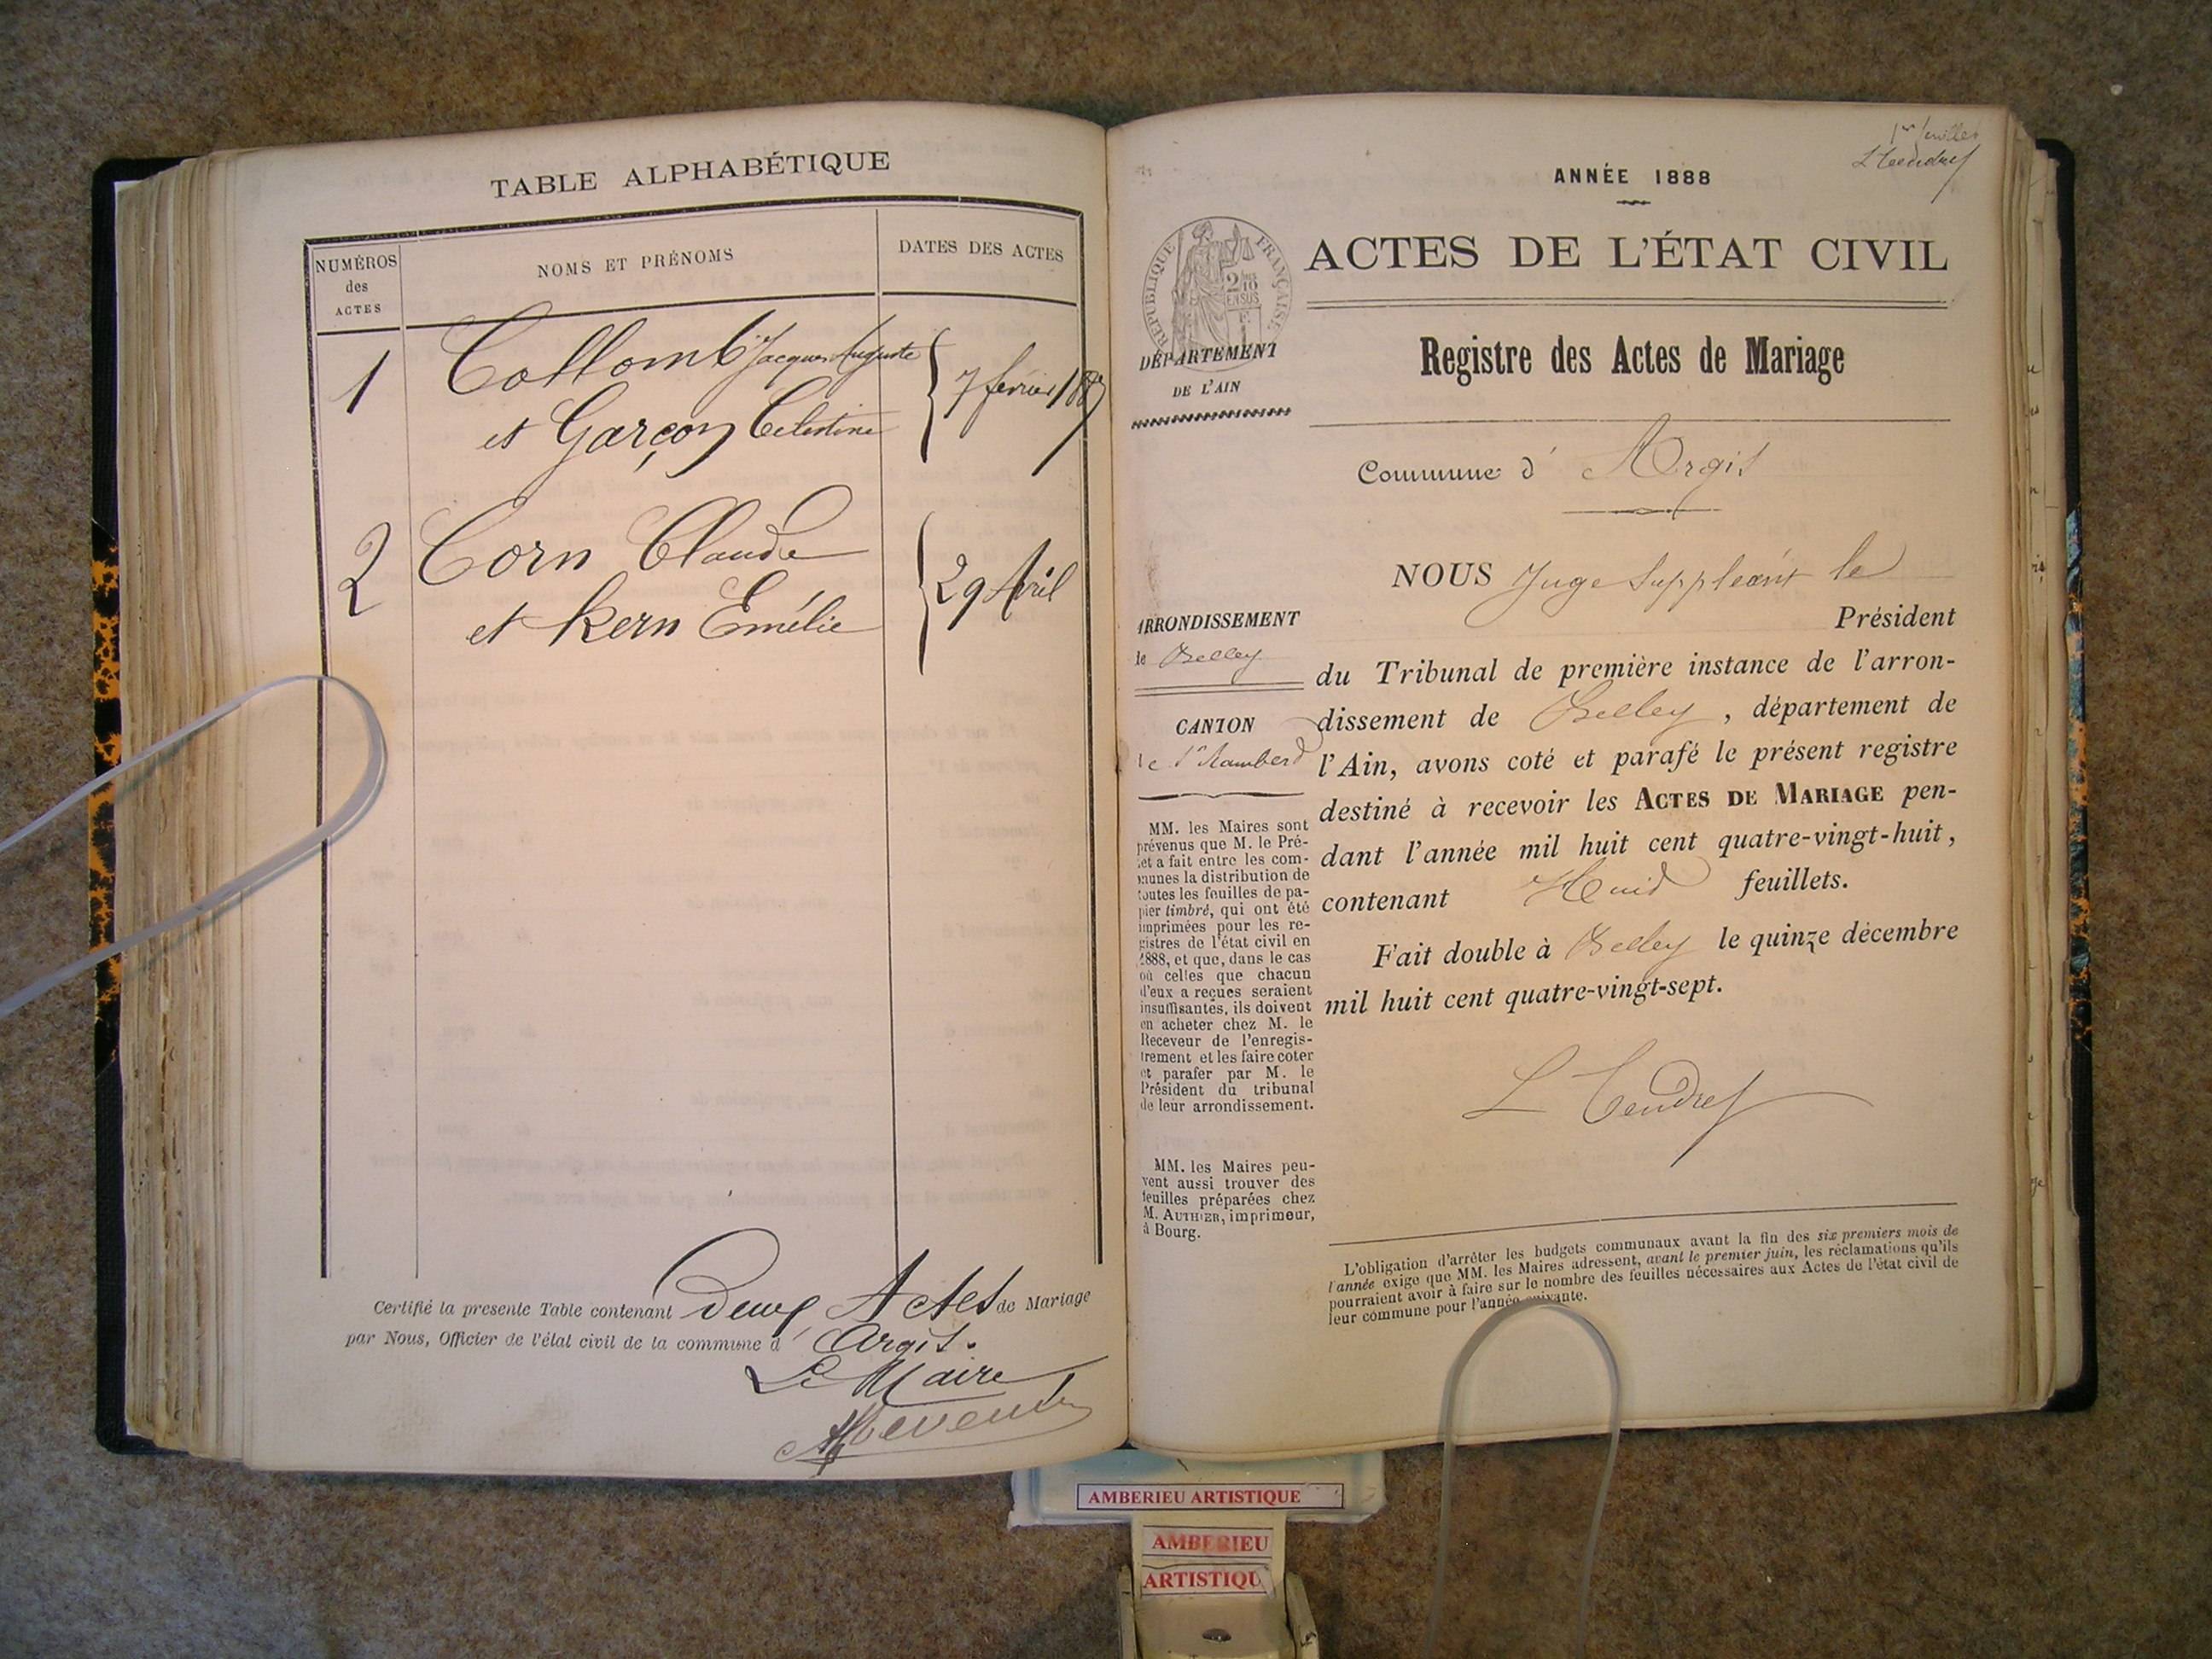 TABLE ALPHABÉTIQUE
NUMÉROS
des
ACTES
NOMS ET PRÉNOMS
DATES DES ACTES
1
Collomb Jacques Auguste
et Garçon Celestine
7 février 1887
2
Corn Claude
et Kern Emélie
29 Avril
Certifié la presente Table contenant deux Actes de Mariage
par Nous, Officier de l'état civil de la commune d' Argis.
Le Maire
1er feuillet
L Tendret
ANNÉE 1888
ACTES DE L'ÉTAT CIVIL
RÉPUBLIQUE FRANÇAISE
2/10
EN SUS
DÉPARTEMENT
DE L'AIN
Registre des Actes de Mariage
Commune d' Argis
ARRONDISSEMENT
de Belley
CANTON
de St Rambert
MM. les Maires sont
prévenus que M. le Pré-
fet a fait entre les com-
munes la distribution de
toutes les feuilles de pa-
pier timbré, qui ont été
imprimées pour les re-
gistres de l'état civil en
1888, et que, dans le cas
où celles que chacun
d'eux a reçues seraient
insuffisantes, ils doivent
en acheter chez M. le
Receveur de l'enregis-
trement et les faire coter
et parafer par M. le
Président du tribunal
de leur arrondissement.
MM. les Maires peu-
vent aussi trouver des
feuilles préparées chez
M. AUTHIER, imprimeur,
à Bourg.
NOUS Juge Suppléant le
Président
du Tribunal de première instance de l'arron-
dissement de Belley, département de
l'Ain, avons coté et parafé le présent registre
destiné à recevoir les ACTES DE MARIAGE pen-
dant l'année mil huit cent quatre-vingt-huit,
contenant Huit feuillets.
Fait double à Belley le quinze décembre
mil huit cent quatre-vingt-sept.
L Tendret
L'obligation d'arrêter les budgets communaux avant la fin des six premiers mois de
l'année exige que MM. les Maires adressent, avant le premier juin, les réclamations qu'ils
pourraient avoir à faire sur le nombre des feuilles nécessaires aux Actes de l'état civil de
leur commune pour l'année suivante.
AMBERIEU ARTISTIQUE
AMBERIEU
ARTISTIQU